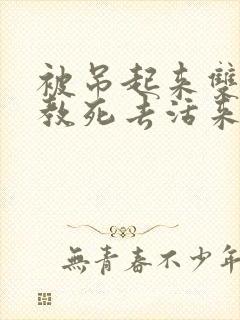 被吊起来雙
教死去活来
無青春不少年